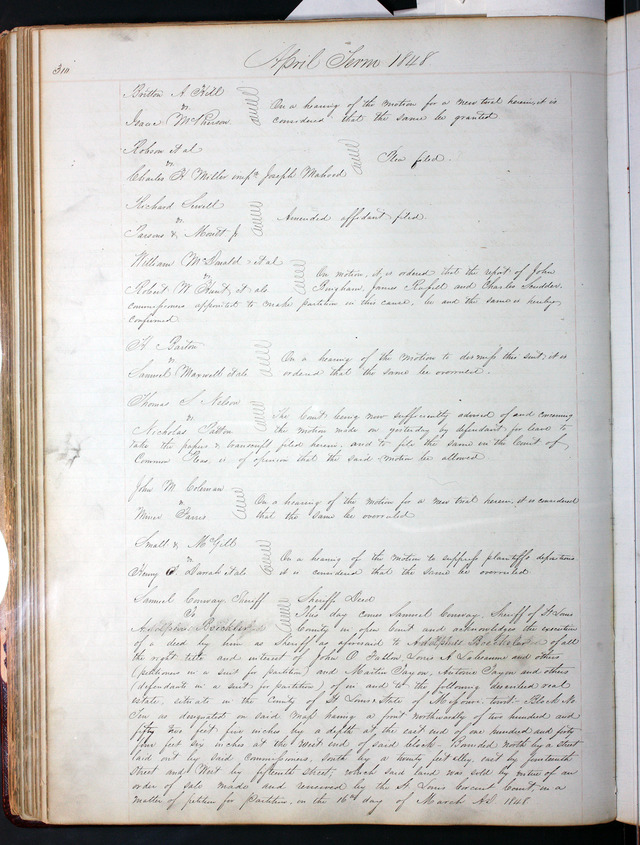 310
April Term 1848
Britton A Hill
vs
Isaac McPherson
On a hearing of the motion for a new trial herein, it is
considered that the same be granted
Robson et al
vs
Charles H Miller Joseph Mahood
Plea filed.
Richard
vs
Parsons &
Amended affidavit filed
William McDonald et al
vs
Robert W Hunt, et als
On motion, it is ordered that the report of John
Bingham, James and Charles Scudder,
commissioners appointed to make partition in this cause, be and the same is hereby
confirmed
Barton
vs
Samuel Maxwell et als
On a hearing of the motion to dismiss this suit, it is
ordered that the same be overruled.
Thomas S Nelson
vs
Nicholas Patton
The Court being now sufficiently advised of and concerning
the motion made on yesterday by defendant for leave to
take the papers & transcript filed herein, and to file the same in the Court of
Common Pleas, is of opinion that the said motion be allowed
John M. Coleman
vs
Minor
On a hearing of the motion for a new trial herein, it is considered
that the same be overruled
Small & McGill
vs
Henry Darrah et als
On a hearing of the motion to suppress plaintiff's depositions
it is considered that the same be overruled
Samuel Conway Sheriff
vs
Adolphus
Sheriff Deed
This day comes Samuel Conway, Sheriff of St Louis
County in open Court and acknowledges the execution
of a deed by him as Sheriff as aforesaid to Adolphus of all
the right title and interest of John O Fallon, Louis A Labeaume and others
(petitioners in a suit for partition) and Martin Payon, Antoine Payon and others
(defendants in a suit for partition) of in and to the following described real
estate, situate in the County of St Louis & State of Missouri, to wit - Block No
Ten as designated on said Map having a front northwardly of two hundred and
fifty two feet five inches by a depth at the east end of one hundred and forty
four feet six inches at the West end of said block - Bounded north by a street
laid out by said commissioners, South by a twenty feet alley, east by fourteenth
Street and West by fifteenth street, which said land was sold by virtue of an
order of sale made and received by the St. Louis Circuit Court, in a
matter of petition for Partition, on the 16th day of March AD 1848